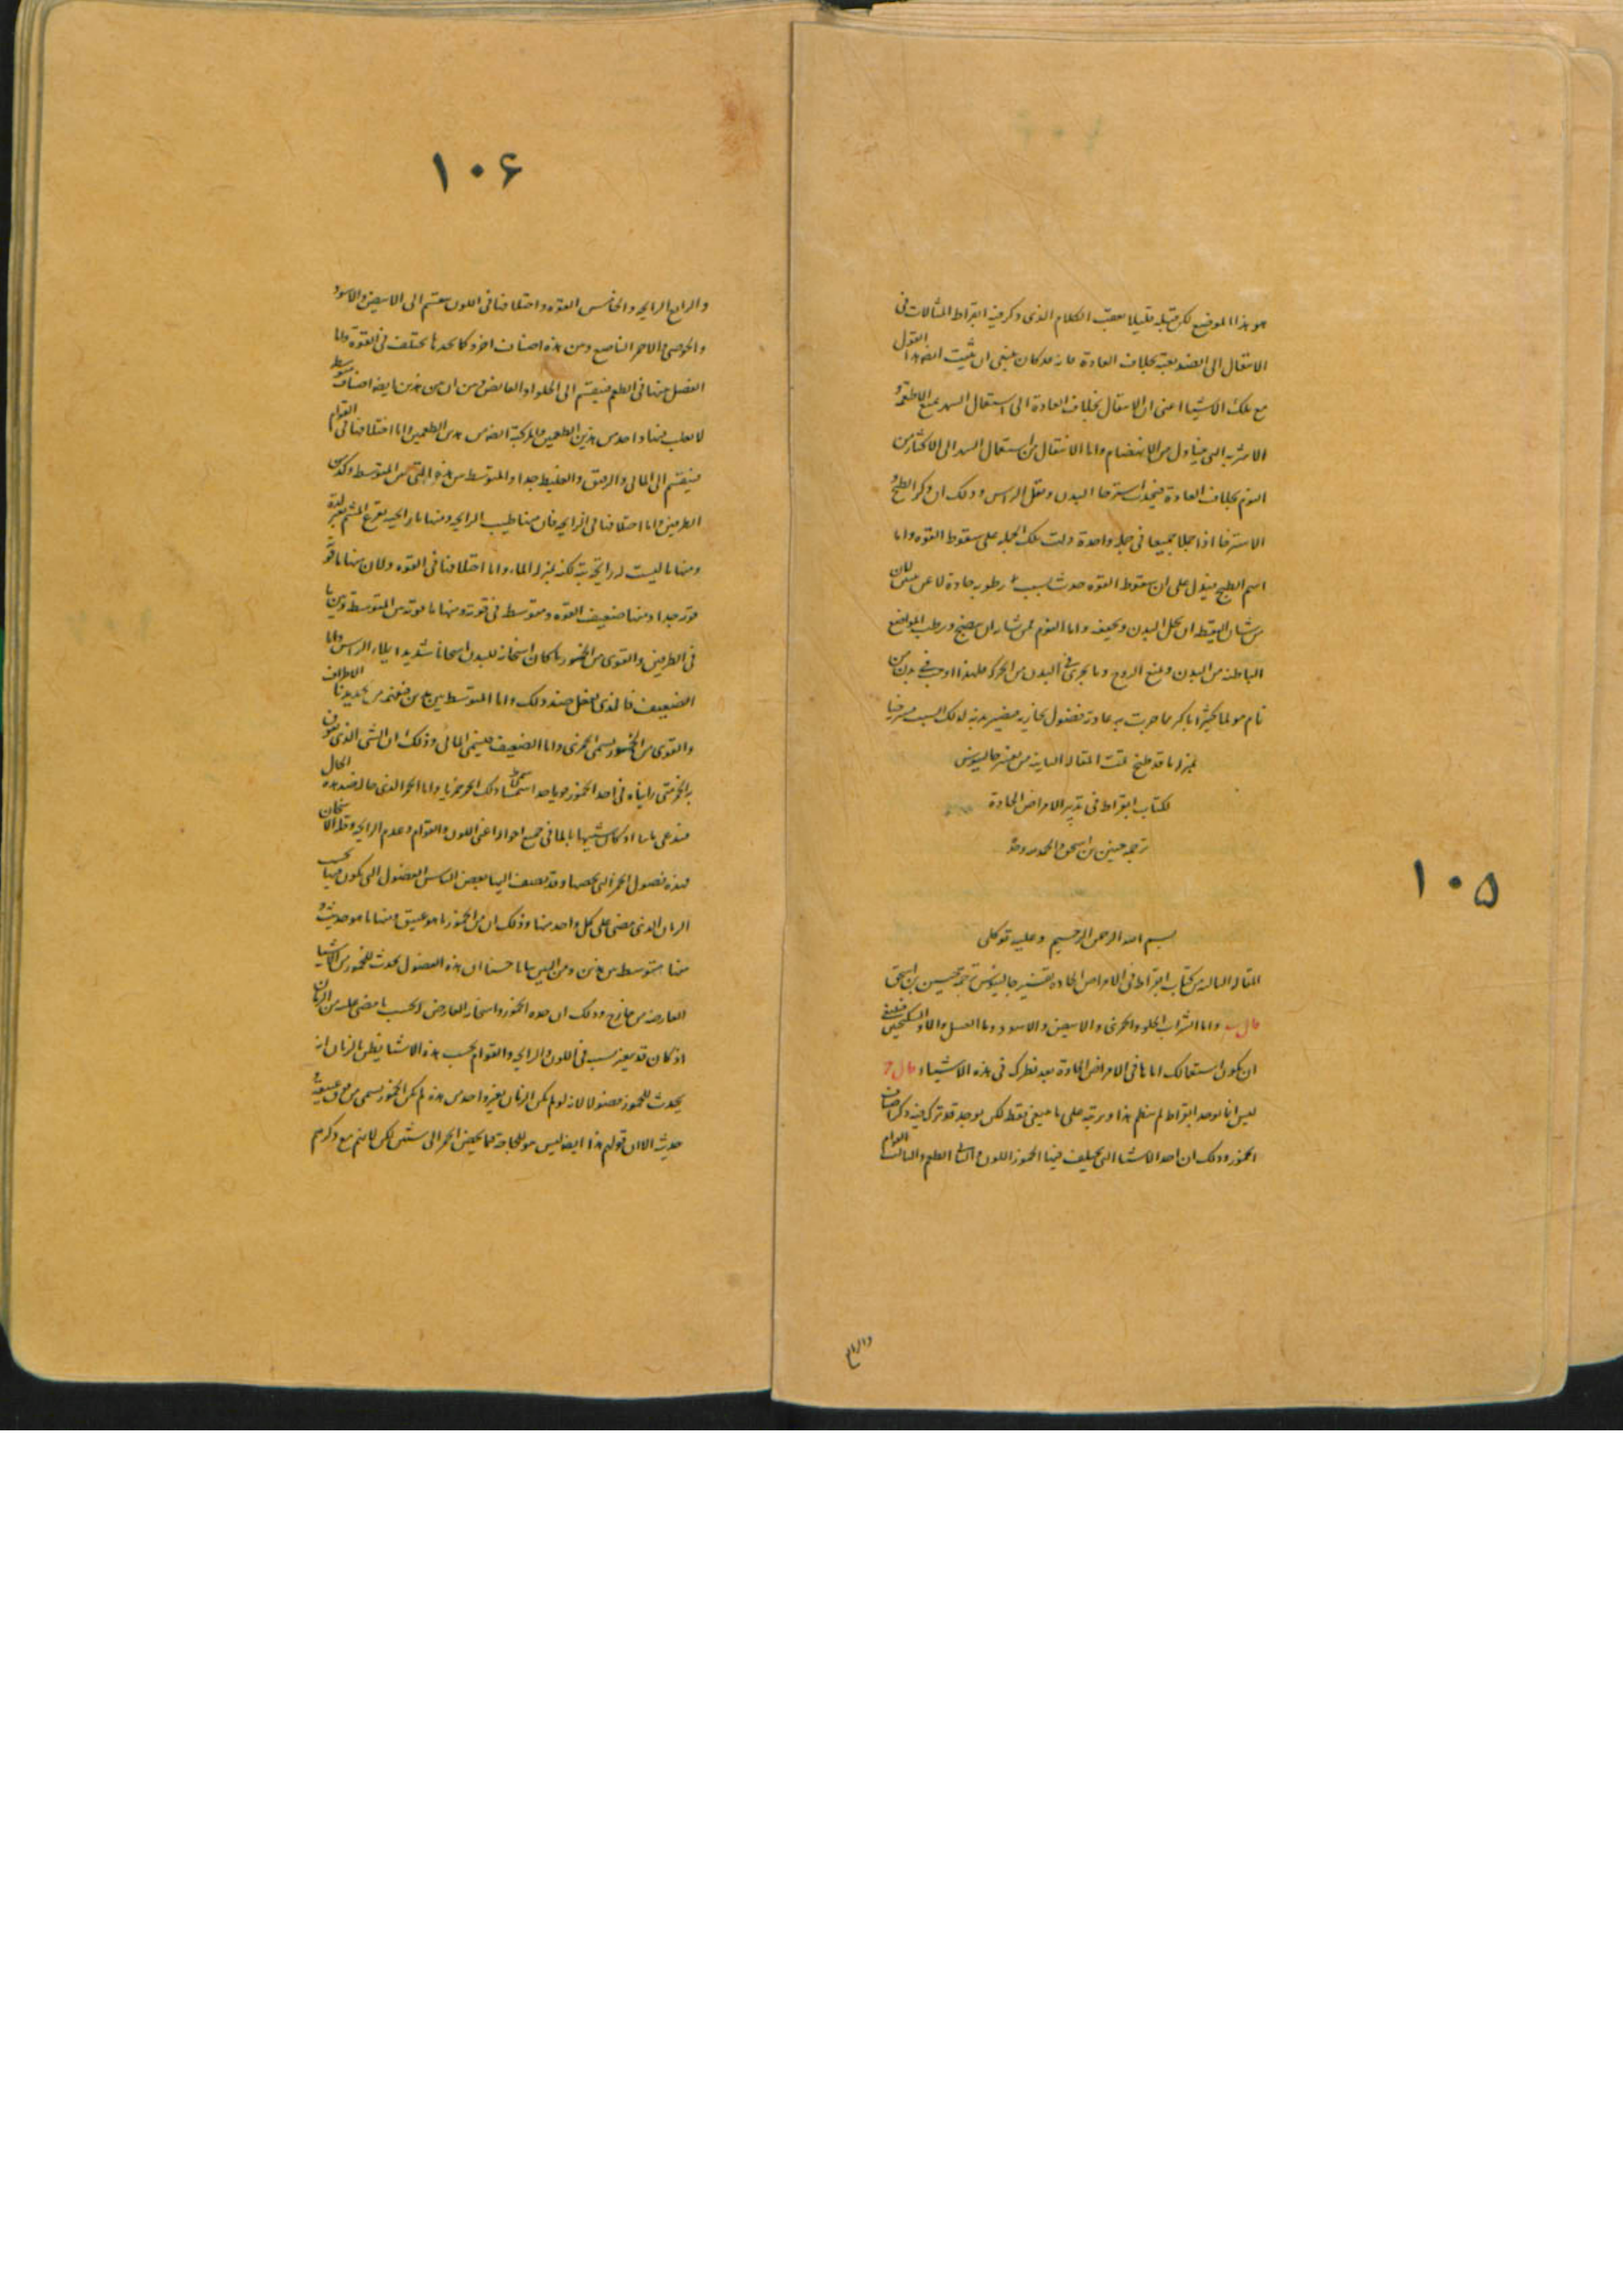 هو هذا الموضع لكن قبله قليلا بعقب الكلام الذى ذكر فيه ابقراط المثالات فى
الانتقال الى الضد بغتة بخلاف العادة فانه قد كان ينبغى ان يثبت ايضا هذا القول
مع تلك الاشياء اعنى ان الانتقال بخلاف العادة الى استعمال السهر يمنع الاطعمة و
الاشربة التى يتناول من الانهضام واما الانتقال من استعمال السهر الى الاكثار من
النوم بخلاف العادة فيحدث استرخا البدن وثقل الراس وذلك ان ذكر الطبخ و
الاسترخا اذا جعلا جميعا فى جملة واحدة دلت تلك الجملة على سقوط القوة واما
اسم الطبخ فيدل على ان سقوط القوة حدث بسبب رطوبة حادة لا عن يبس لان
من شان اليقظة ان يحلل البدن ويجفف واما النوم فمن شانه ان ينضج ويرطب المواضع
الباطنة من البدن ويمنع الروح وما يجرى فى البدن من الحركة فلهذا اوجب فى بدن من
نام نوما كثيرا اكثر مما جرت به عادته فضول بخارية فيصير بدنه لذلك السبب مسترخيا
بمنزلة ما قد طبخ تمت المقالة الثانية من تفسير جالينوس
لكتاب ابقراط فى تدبير الامراض الحادة
ترجمة حنين بن اسحق والحمد لله وحده
١٠٥
بسم الله الرحمن الرحيم وعليه توكلى
المقالة الثالثة من كتاب ابقراط فى الامراض الحادة تفسير جالينوس ترجمة حنين بن اسحق
قال ب واما الشراب الحلو والخمرى والابيض والاسود وما العسل والماء والسكنجبين فينبغى
ان يكون استعمالك اياها فى الامراض الحادة بعد نظرك فى هذه الاشياء قال ج
ليس انا نوجد ابقراط لم ينظم هذا ويرتبه على ما ينبغى فقط لكن يوجد قد ترك فيه ذكر اصناف
الخمور وذلك ان احد الاشيا التى يختلف فيها الخمور اللون والثانى الطعم والثالث القوام
والرابع
١٠۶
والرابع الرايحة والخامس القوة واختلافها فى اللون ينقسم الى الابيض والاسود
والخوصى والاحمر الناصع ومن هذه اصناف اخر وكل احدها يختلف فى القوة واما
الفصل منها فى الطعم فينقسم الى الحلو او القابض ومن ان من هذين ايضا اصناف متوسطة
لا يغلب منها واحد من هذين الطعمين والمركبة ايضا من هذين الطعمين واما اختلافها فى القوام
فينقسم الى المائى والرقيق والغليظ جدا والمتوسط من هذه التى بين المتوسط وكل من
الطرفين واما اختلافها فى الرايحة فان منها طيب الرايحة ومنها ما رايحته تقرع المشم بقوة
ومنها ما ليست له رايحة بتة لكنه بمنزلة الماء واما اختلافها فى القوة فلان منها ما قوته
قوية جدا ومنها ضعيف القوة ومتوسط فى قوته ومنها ما قوته بين المتوسط وبين ما
فى الطرفين والقوى من الخمور ما كان اسخانه للبدن اسخانا شديدا يملاء الراس واما
الضعيف فالذى يفعل ضد ذلك واما المتوسط بين هذين فيفهم من تحديدنا الاطراف
والقوى من الخمور يسمى الخمرى واما الضعيف فيسمى المائى وذلك ان الشى الذى يعرف
به الخمر متى رايناه فى احد الخمور قويا جدا سمينا ذلك الخمر خمريا واما الخمر الذى حاله ضد هذه الحال
فيدعى مائيا اذ كان شبيها بالماء فى جميع احواله اعنى اللون والقوام وعدم الرايحة وقلة الاسخان
فهذه فصول الخمر التى تخصها وقد يضيف اليها بعض الناس الفصول التى تكون فيها بحسب
الزمان الذى مضى على كل واحد منها وذلك ان من الخمور ما هو عتيق ومنها ما هو حديث و
منها متوسط بين هذين ومن البين ان هذه الفصول تحدث للخمور من الاشيا
العارضة من خارج وذلك ان حدة الخمور واسخانه العارض له بحسب ما مضى عليه من الزمان
اذ كان قد يعينه بسببه فى اللون والرايحة والقوام بحسب هذه الاشيا يظن بالزمان انه
يحدث للخمور فصولا لانه لو لم يكن الزمان يغير واحدا من هذه لم يكن الخمور يسمى عتيقة و
حديثة الا ان قولهم هذا ايضا ليس هو للحاجة فيما يخص الخمر الى شئ لكن لانهم مع ذكرهم